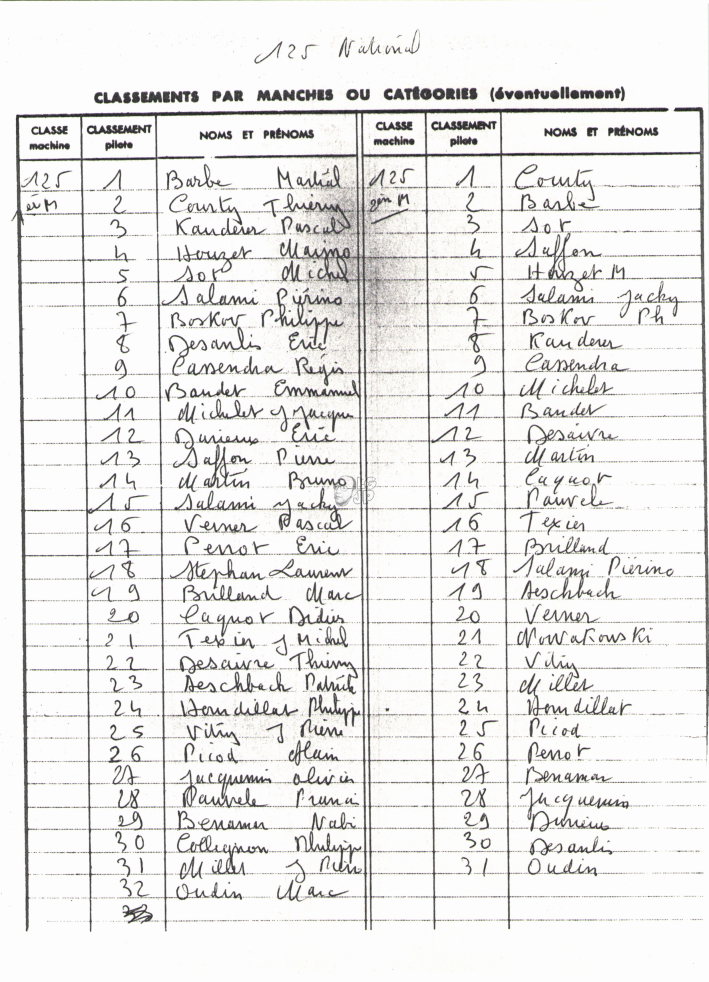 125 National
CLASSEMENTS PAR MANCHES OU CATÉGORIES (éventuellement)
CLASSE machine CLASSEMENT pilote NOMS ET PRÉNOMS CLASSE machine CLASSEMENT pilote NOMS ET PRÉNOMS
125 1 Barbe Martial 125 1 Courty
M 2 Courty Thierry M 2 Barbe
3 Kanderer Pascal 3 Sot
4 Houzet 4 Saffon
5 Sot Michel 5 Houzet M
6 Salami Piérino 6 Salami Jacky
7 Boskov Philippe 7 Boskov Ph
8 Desanlis Eric 8 Kanderer
9 Cassendra Régis 9 Cassendra
10 Baudet Emmanuel 10 Michelet
11 Michelet J Jacques 11 Baudet
12 Eric 12 Desaivre
13 Saffon Pierre 13 Martin
14 Martin Bruno 14 Caquot
15 Salami Jacky 15 Pauvele
16 Verner Pascal 16 Texier
17 Perrot Eric 17 Brilland
18 Stephan Laurent 18 Salami Piérino
19 Brilland Marc 19 Aeschbach
20 Caquot Didier 20 Verner
21 Texier J Michel 21 Nowatowski
22 Desaivre Thierry 22 Vitry
23 Aeschbach Patrick 23 Millet
24 Homdillat Philippe 24 Homdillat
25 Vitry J Pierre 25 Picod
26 Picod Alain 26 Perrot
27 Jacquemin Olivier 27 Benamar
28 Pauvele Francis 28 Jacquemin
29 Benamar Nabi 29
30 Collignon Philippe 30 Desanlis
31 Millet J Pierre 31 Oudin
32 Oudin Marc